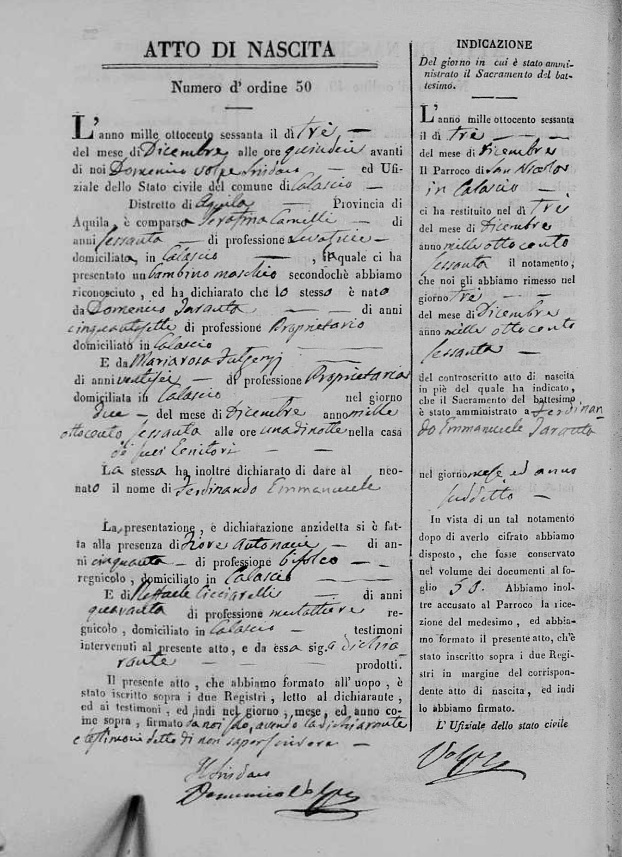 ATTO DI NASCITA
Numero d' ordine 50
L'anno mille ottocento sessanta il dì tre
del mese di Dicembre alle ore quindici avanti
di noi Domenico Volpe Sindaco ed Ufi-
ziale dello Stato civile del comune di Calascio
Distretto di Aquila Provincia di
Aquila, è comparsa Serafina Camelli di
anni sessanta di professione Levatrice
domiciliata in Calascio , la quale ci ha
presentato un bambino maschio secondochè abbiamo
riconosciuto, ed ha dichiarato che lo stesso è nato
da Domenico Taranta di anni
cinquantasette di professione Proprietario
domiciliato in Calascio
E da Mariarosa Fulgenzj
di anni ventisei di professione Proprietaria
domiciliata in Calascio nel giorno
due del mese di Dicembre anno mille
ottocento sessanta alle ore una di notte nella casa
de suoi Genitori
La stessa ha inoltre dichiarato di dare al neo-
nato il nome di Ferdinando Emmanuele
La presentazione, e dichiarazione anzidetta si è fat-
ta alla presenza di Fiore Antonacci di an-
ni cinquanta di professione bifolco
regnicolo, domiciliato in Calascio
E di Raffaele Cicciarelli di anni
quaranta di professione mulattiere re-
gnicolo, domiciliato in Calascio testimoni
intervenuti al presente atto, e da essa sig.a dichia
rante prodotti.
Il presente atto, che abbiamo formato all'uopo, è
stato iscritto sopra i due Registri, letto al dichiarante,
ed ai testimoni, ed indi nel giorno, mese, ed anno co-
me sopra, firmato da noi solo, avendo la dichiarante
e testimoni detto di non saper scrivere
Il Sindaco
Domenico Volpe
INDICAZIONE
Del giorno in cui è stato ammi-
nistrato il Sacramento del bat-
tesimo.
L'anno mille ottocento sessanta
il dì tre
del mese di Dicembre
Il Parroco di San Nicola
in Calascio
ci ha restituito nel dì tre
del mese di Dicembre
anno mille ottocento
sessanta il notamento,
che noi gli abbiamo rimesso nel
giorno tre
del mese di Dicembre
anno mille ottocento
sessanta
del controscritto atto di nascita
in piè del quale ha indicato,
che il Sacramento del battesimo
è stato amministrato a Ferdinan
do Emmanuele Taranta
nel giorno mese, ed anno
suddetto
In vista di un tal notamento
dopo di averlo cifrato abbiamo
disposto, che fosse conservato
nel volume dei documenti al fo-
glio 50. Abbiamo inol-
tre accusato al Parroco la rice-
zione del medesimo, ed abbia-
mo formato il presente atto, ch'è
stato inscritto sopra i due Regi-
stri in margine del corrispon-
dente atto di nascita, ed indi
lo abbiamo firmato.
L' Ufiziale dello stato civile
Volpe